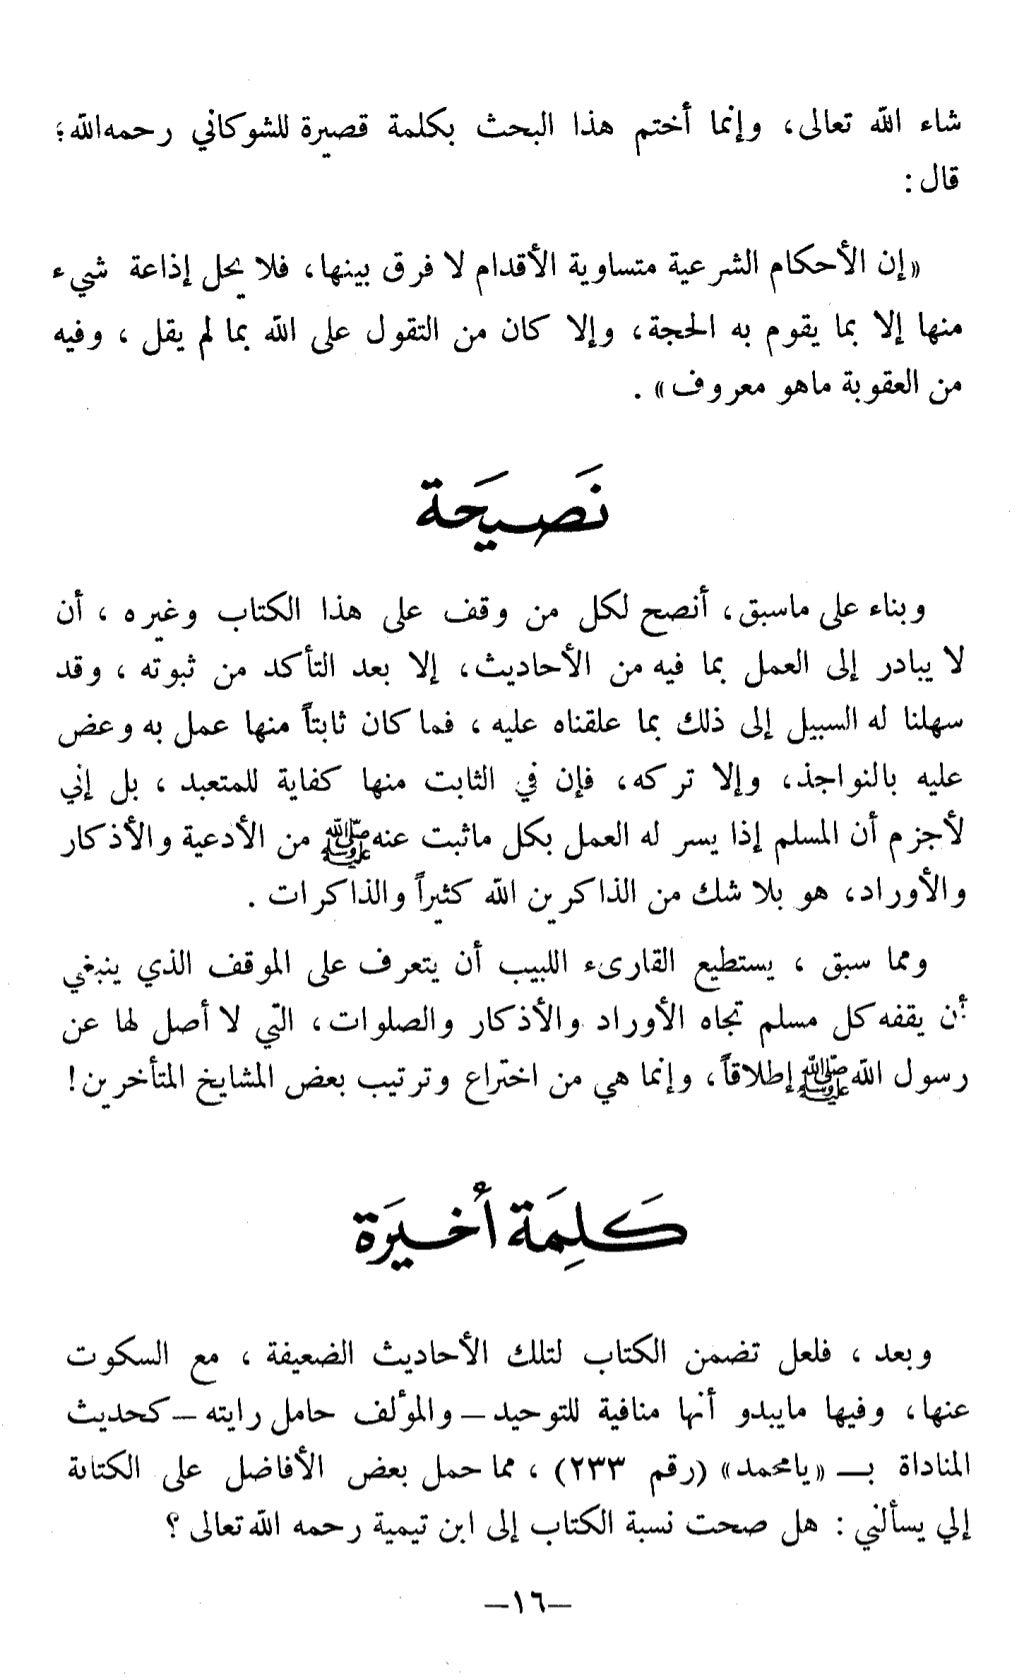 شاء الله تعالى، وإنما أختم هذا البحث بكلمة قصيرة للشوكاني رحمه الله؛
قال :
«إن الأحكام الشرعية متساوية الأقدام لا فرق بينها، فلا يحل إذاعة شيء
منها إلا بما يقوم به الحجة، وإلا كان من التقول على الله بما لم يقل ، وفيه
من العقوبة ماهو معروف» .
نَصيحَة
وبناء على ماسبق، أنصح لكل من وقف على هذا الكتاب وغيره ، أن
لا يبادر إلى العمل بما فيه من الأحاديث، إلا بعد التأكد من ثبوته ، وقد
سهلنا له السبيل إلى ذلك بما علقناه عليه ، فما كان ثابتاً منها عمل به وعض
عليه بالنواجذ، وإلا تركه، فإن في الثابت منها كفاية للمتعبد ، بل إني
لأجزم أن المسلم إذا يسر له العمل بكل ماثبت عنه ﷺ من الأدعية والأذكار
والأوراد، هو بلا شك من الذاكرين الله كثيراً والذاكرات .
ومما سبق ، يستطيع القارىء اللبيب أن يتعرف على الموقف الذي ينبغي
أن يقفه كل مسلم تجاه الأوراد والأذكار والصلوات، التي لا أصل لها عن
رسول الله ﷺ إطلاقاً، وإنما هي من اختراع وترتيب بعض المشايخ المتأخرين!
كَلِمَة أخيرَة
وبعد ، فلعل تضمن الكتاب لتلك الأحاديث الضعيفة ، مع السكوت
عنها، وفيها مايبدو أنها منافية للتوحيد — والمؤلف حامل رايته — كحديث
المناداة بـ «يامحمد» (رقم ٢٣٣) ، مما حمل بعض الأفاضل على الكتابة
إلي يسألني : هل صحت نسبة الكتاب إلى ابن تيمية رحمه الله تعالى ؟
—١٦—